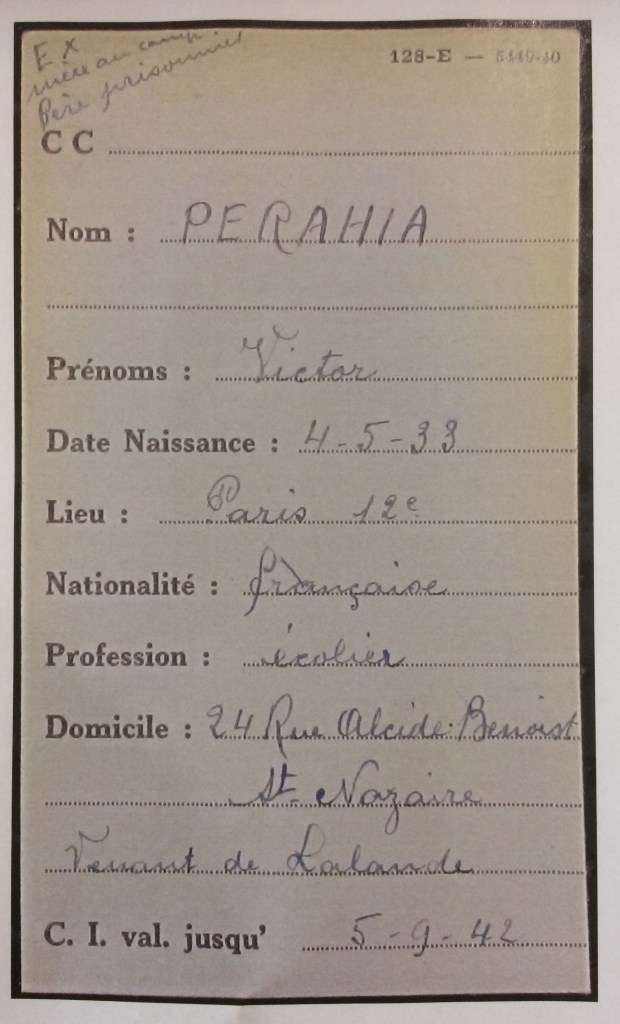 Ex
mère au camp
Père prisonnier
128-E — 5449-40
CC
Nom : PERAHIA
Prénoms : Victor
Date Naissance : 4-5-33
Lieu : Paris 12e
Nationalité : française
Profession : écolier
Domicile : 24 Rue Alcide Benoist
St Nazaire
Venant de Lalande
C. I. val. jusqu' 5-9-42